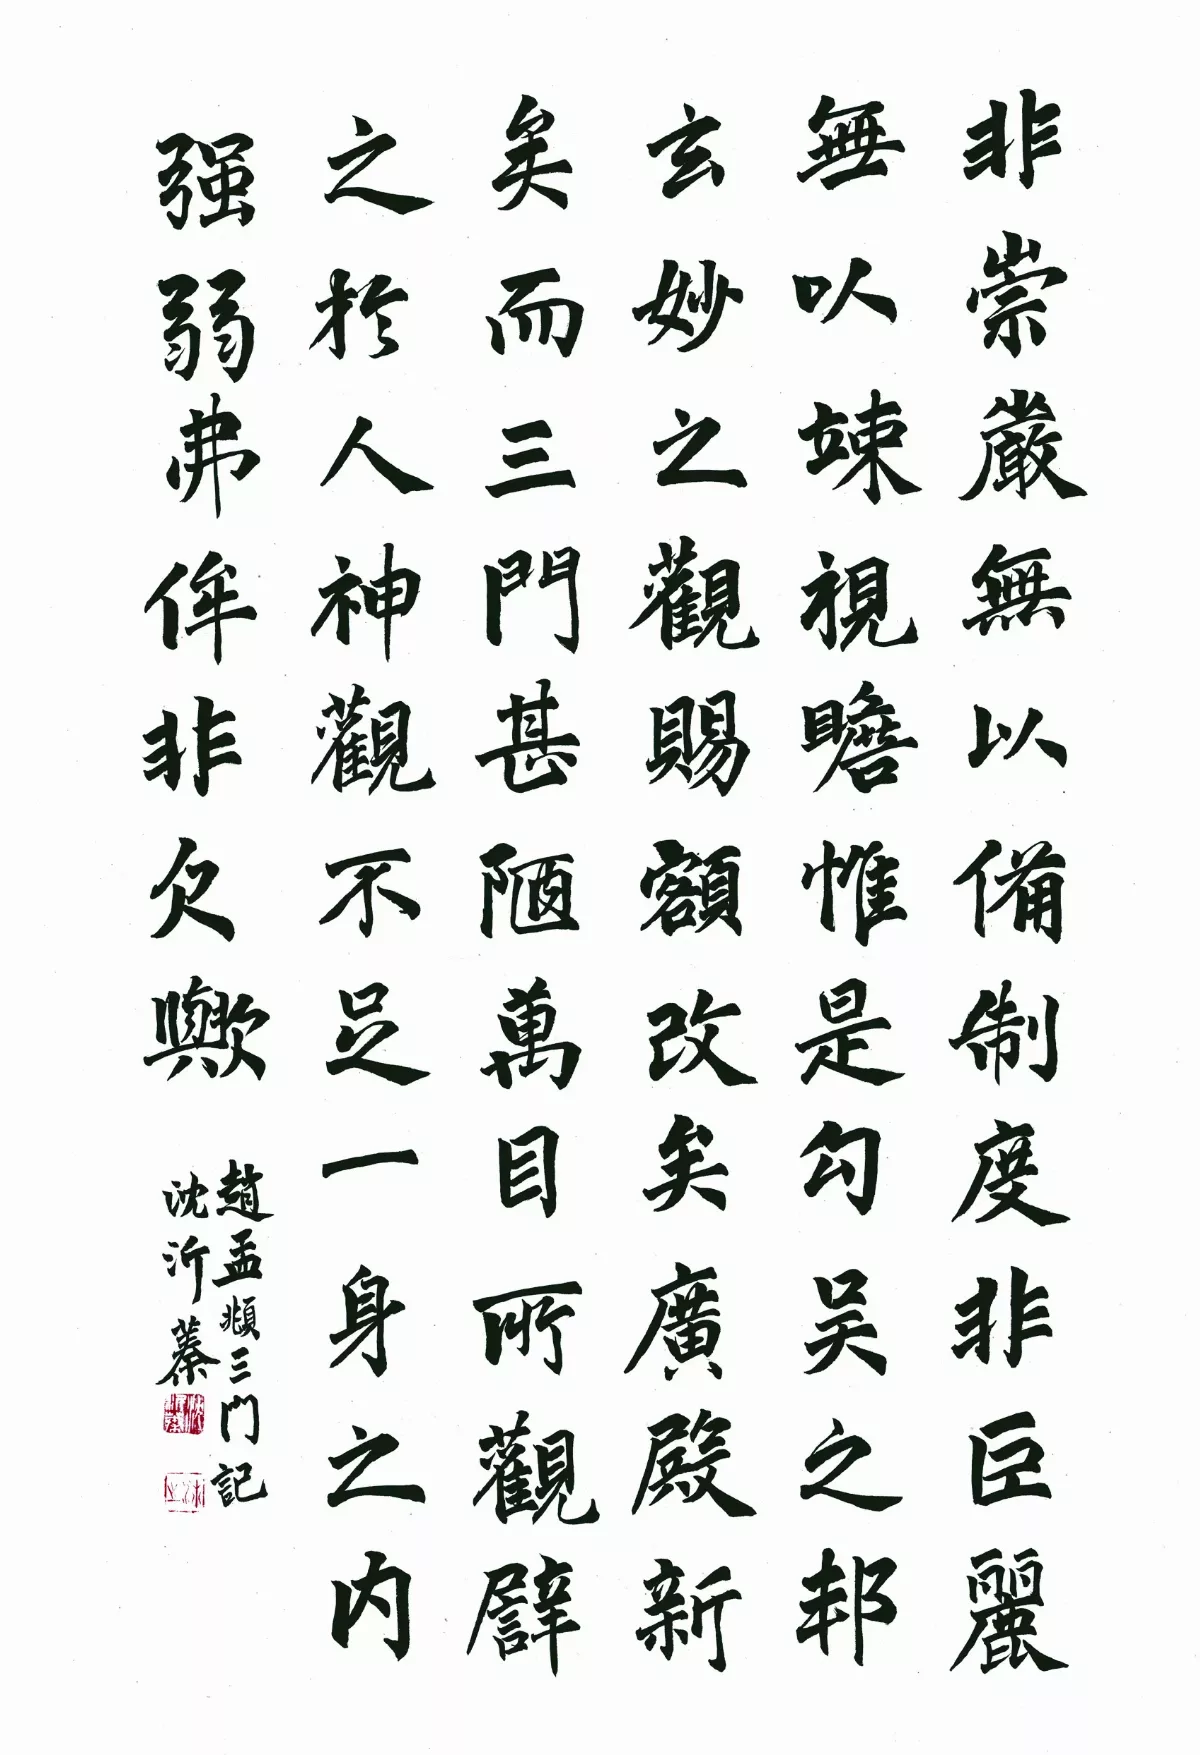 非崇嚴無以備制度非巨麗
無以竦視瞻惟是勾吴之邦
玄妙之觀賜額改矣廣殿新
矣而三門甚陋萬目所觀譬
之於人神觀不足一身之内
强弱弗侔非欠歟
趙孟頫三門記
沈沂蓁